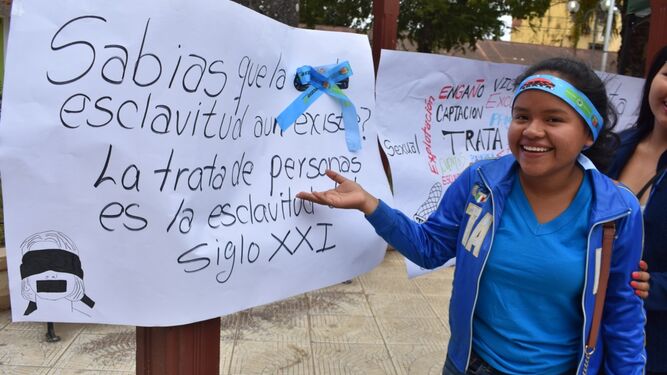 Sabías que la
esclavitud aun existe?
La trata de personas
es la esclavitud
siglo XXI
ENGAÑO
CAPTACION
TRATA
Sexual
Explotación